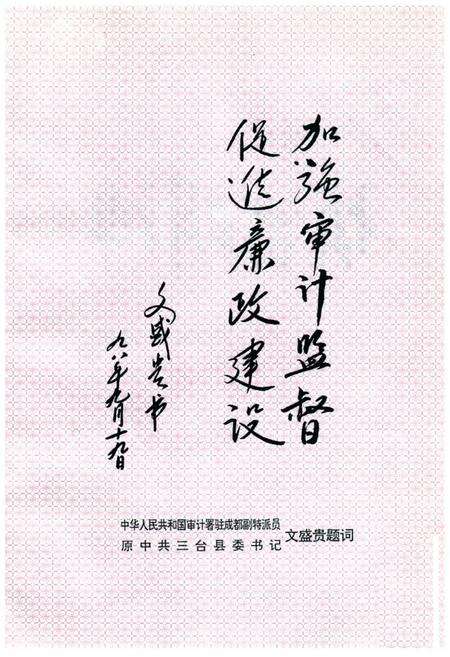 加强审计监督
促进廉政建设
文盛贵书
九八年九月十九日
中华人民共和国审计署驻成都副特派员
原中共三台县委书记 文盛贵题词